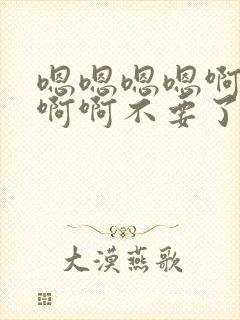 嗯嗯嗯嗯啊
啊啊不要了
大漠燕歌